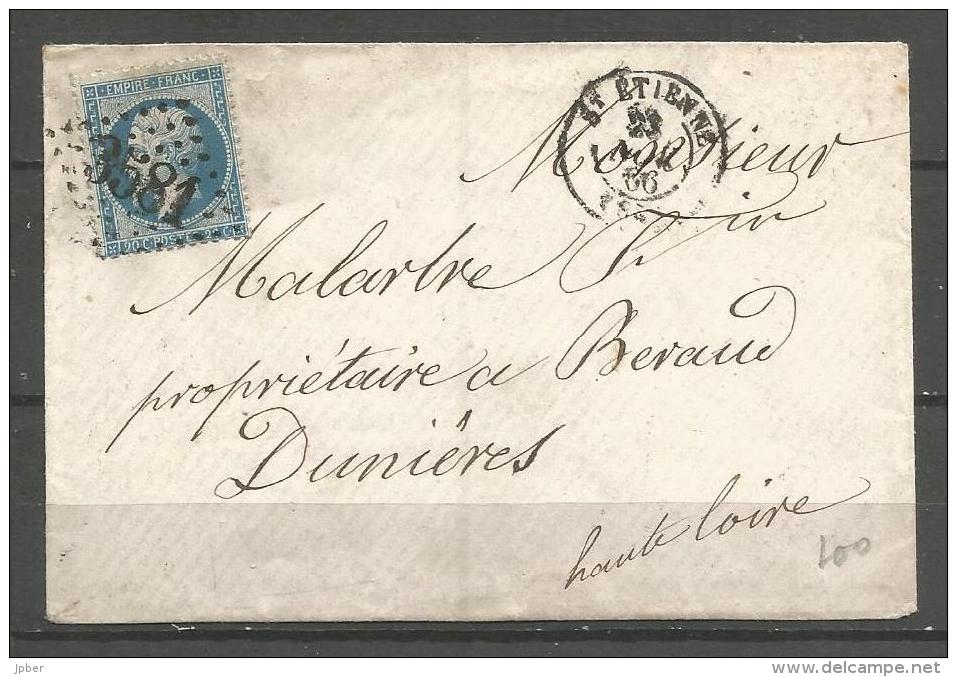 EMPIRE FRANC
3581
20 C POSTES 20 C
ST ETIENNE
66
Monsieur
Malartre
propriétaire a Beraud
Dunières
haute loire
100
jpber
www.delcampe.net